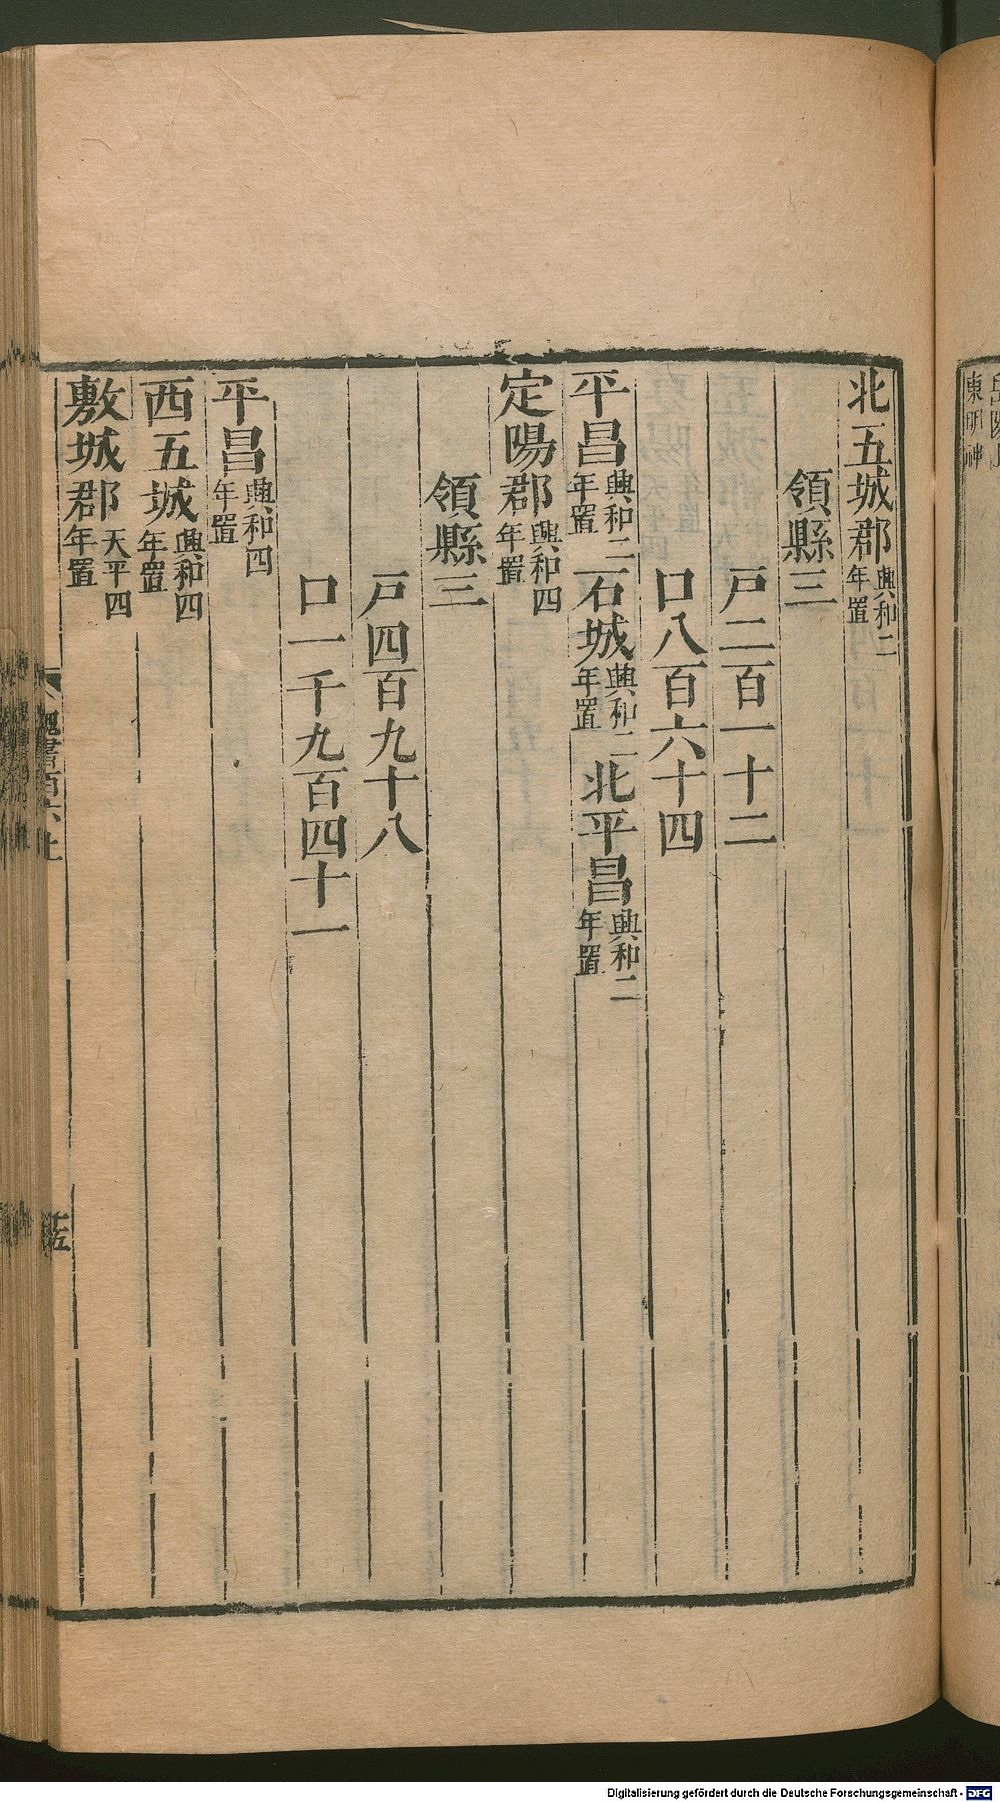 北五城郡興和二年置
領縣三
戸二百一十二
口八百六十四
平昌興和二年置石城興和二年置北平昌興和二年置
定陽郡興和四年置
領縣三
戸四百九十八
口一千九百四十一
平昌興和四年置
西五城興和四年置
敷城郡天平四年置
魏書百六上
東明神
Digitalisierung gefördert durch die Deutsche Forschungsgemeinschaft - DFG